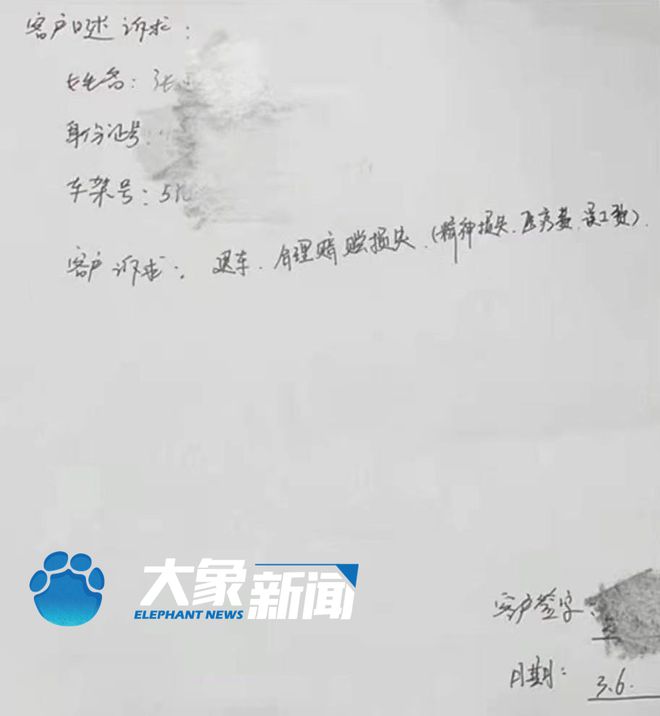 客户口述诉求：
姓名：张
身份证号：
车架号：5
客户诉求：退车、合理赔赔损失（精神损失、医疗费、误工费）.
大象新闻
ELEPHANT NEWS
客户签字：
日期：3.6.